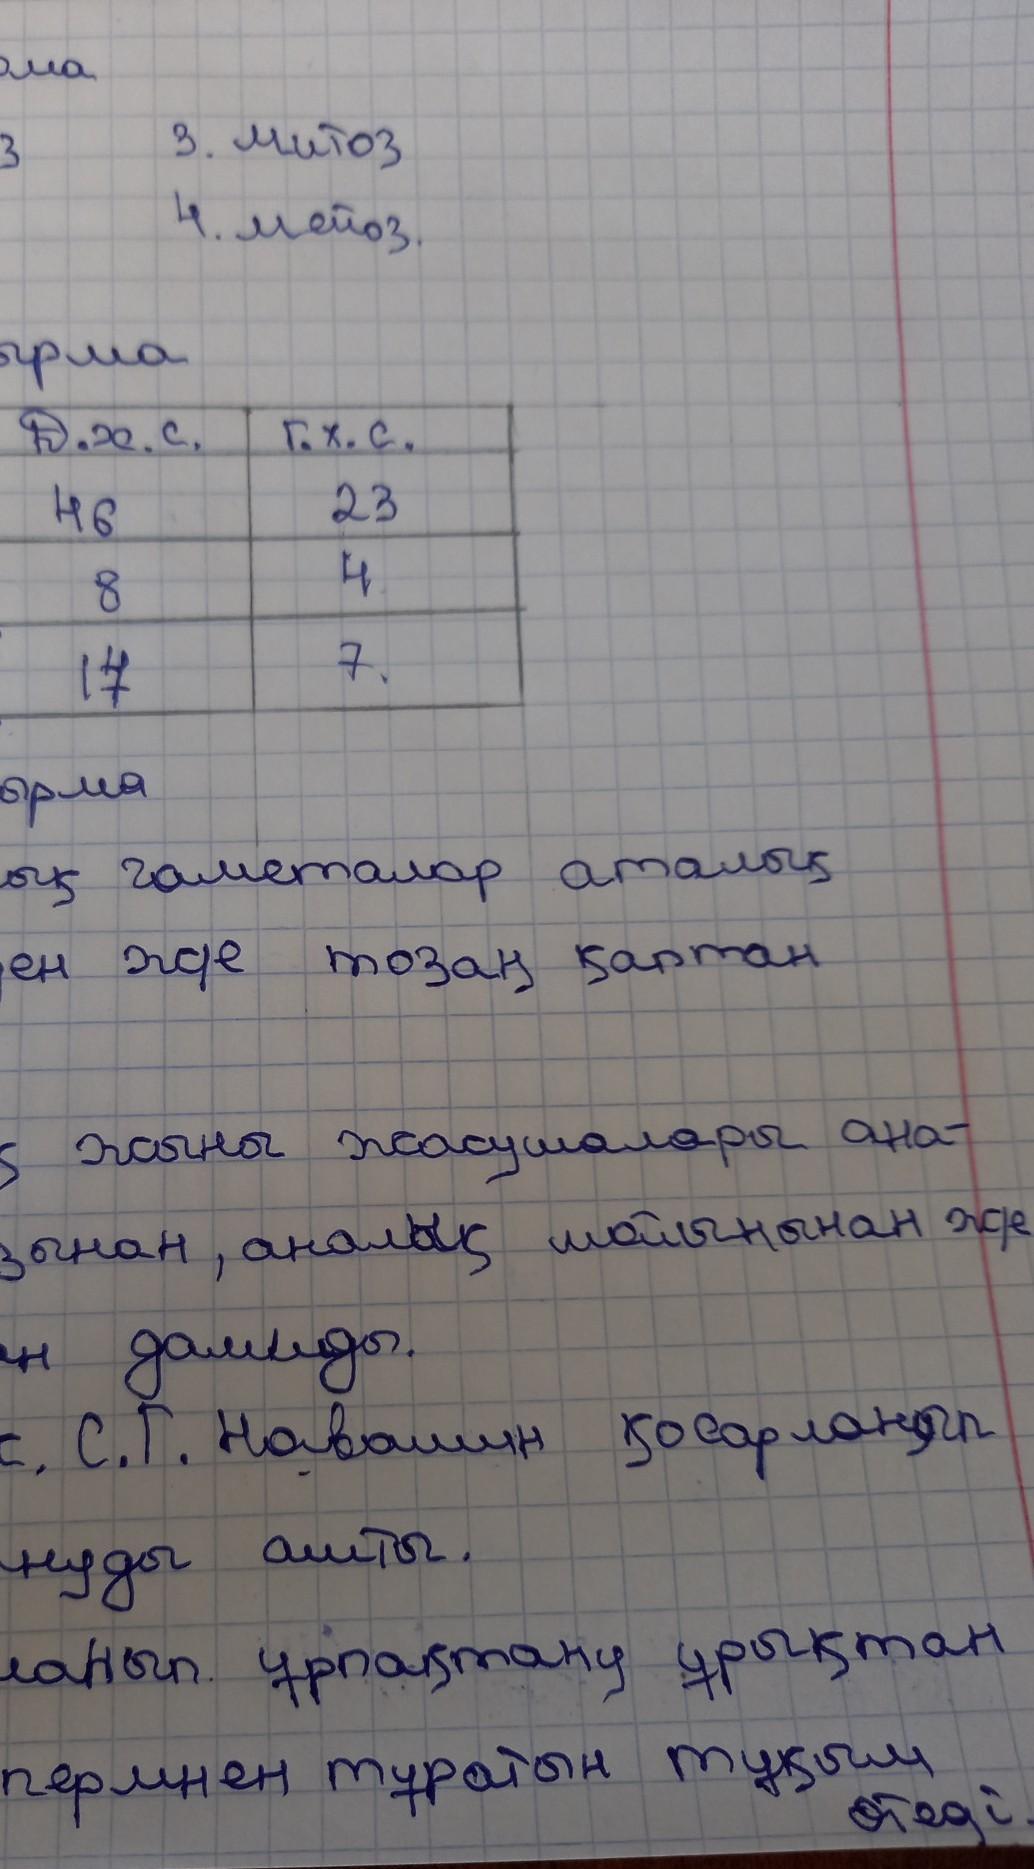 ома
з 3. митоз
4. мейоз.
ырма
Д.х.с. г.х.с.
46 23
8 4
7.
ырма
ық гаметалар аталық
ен жде тозаң қаптан
жыны жасушалары ана-
зынан, аналық мойыңынан жде
ан дамиды.
с. С.Г. Навашин қосарланып
нуды ашты.
ланып. ұрпақтану ұрықтан
пермнен тұратын тұқым
өтеді.